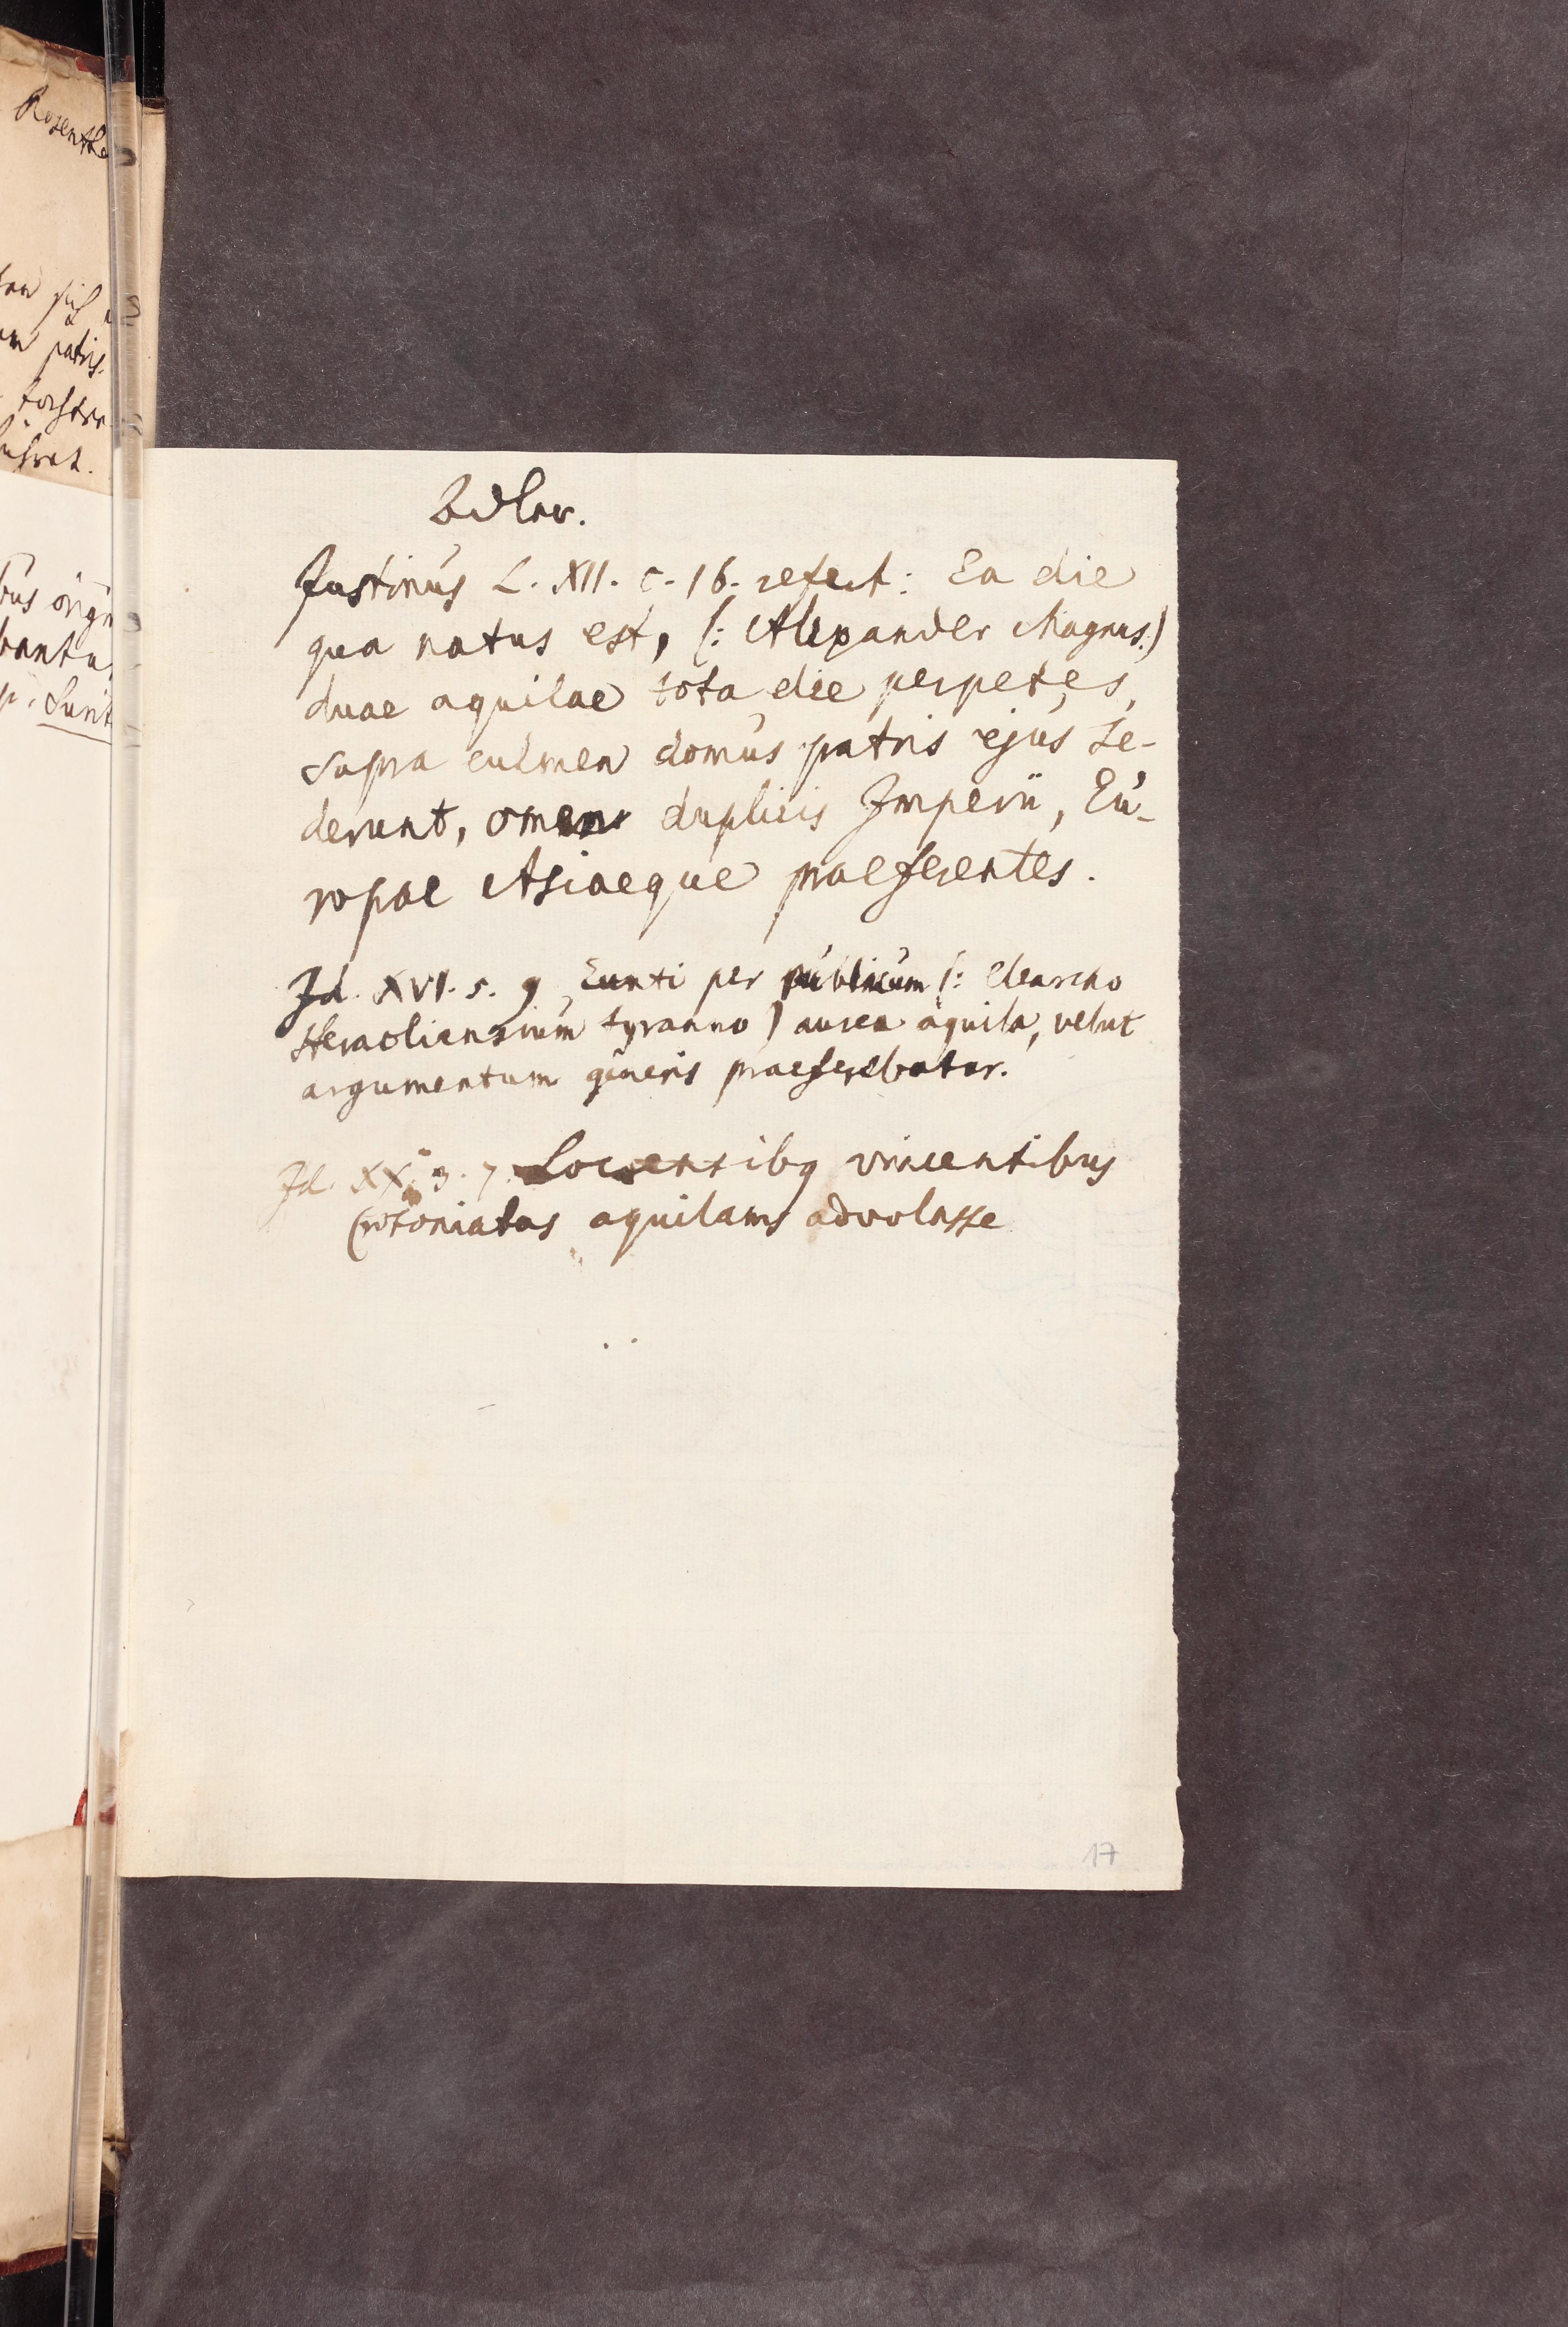 Adler.
Justinus L. XII. c. 16. refert: Ea die
qua natus est, (: Alexander Magnus:)
duae aquilae tota die perpetes,
supra culmen domus patris ejus se-
derunt, omen duplicis Imperii, Eu-
ropae Asiaeque praeferentes.
Id. XVI. 5. 9 Eunti per publicum (: Clearcho
Heracliensium tyranno) aurea aquila, velut
argumentum generis praeferebatur.
Id. XX. 3. 7. Locrensibq vincentibus
Crotoniatas aquilam advolasse
17
Rosenth
patris.
Sunt